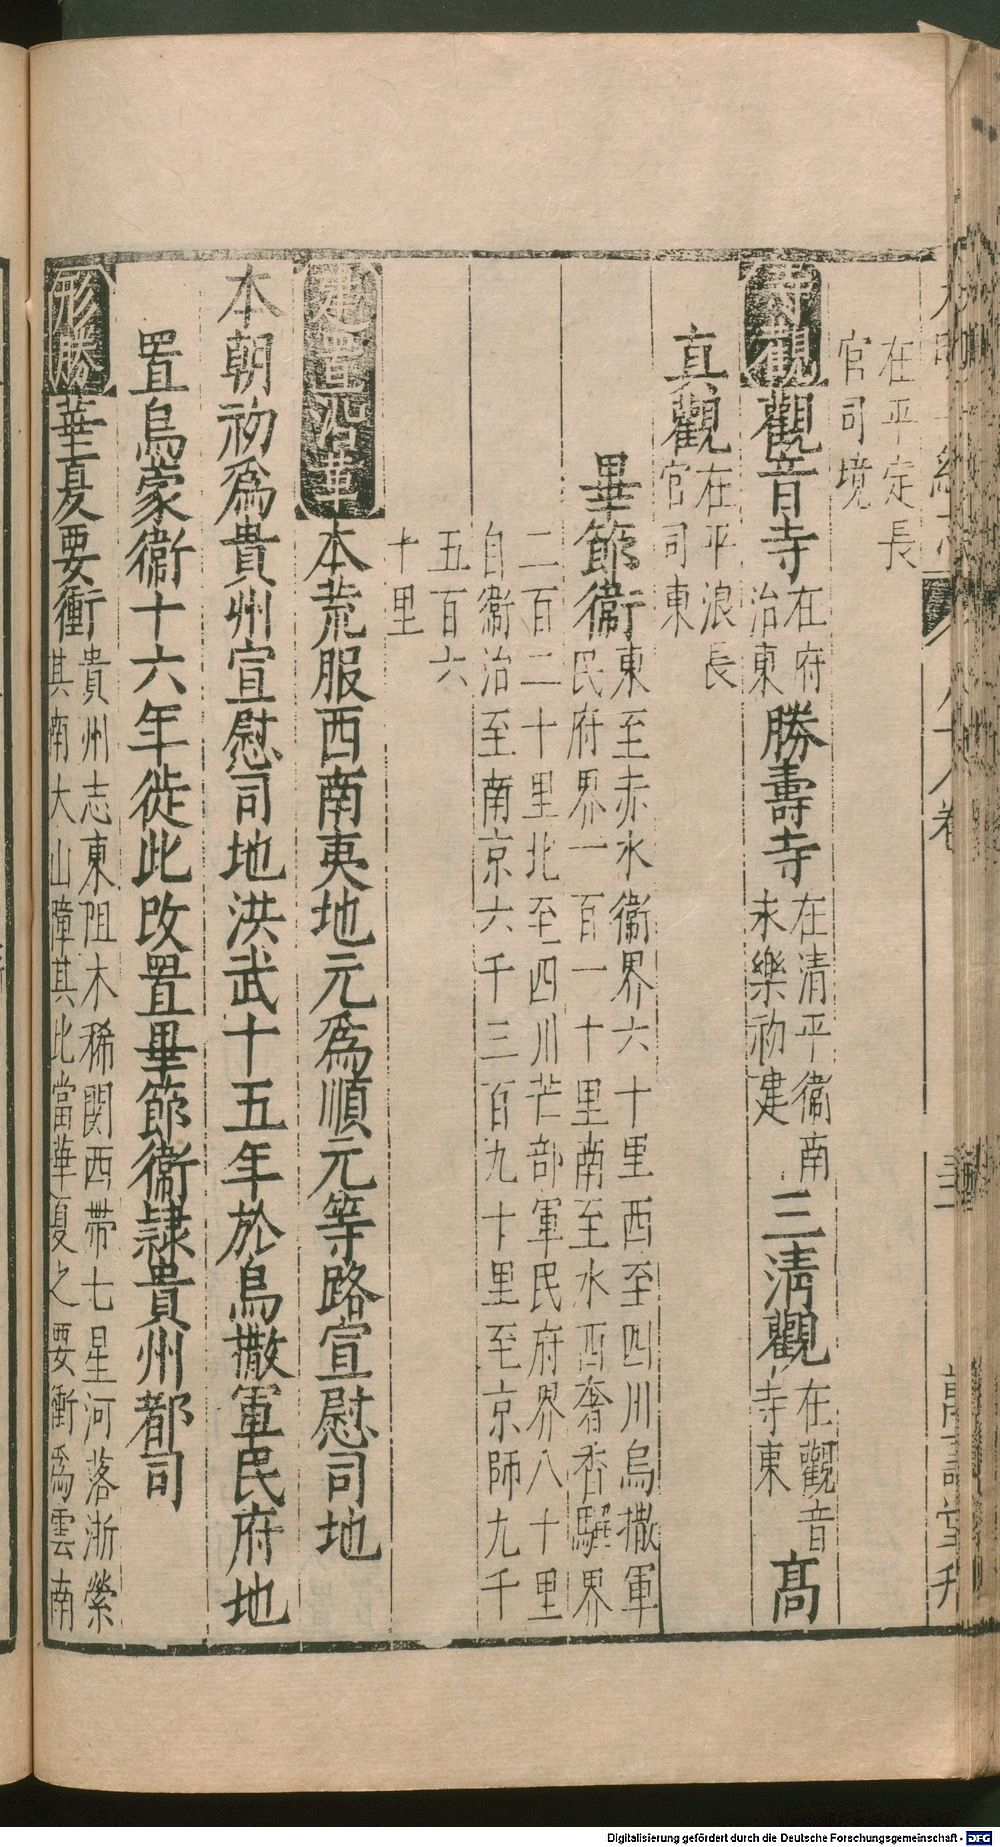 在平定長
官司境
寺觀觀音寺在府治東勝壽寺在清平衞南未樂初建三清觀在觀音寺東高
真觀在平浪長官司東
畢節衞東至赤水衞界六十里西至四川烏撒軍民府界一百一十里南至水西奢香驛界
二百二十里北至四川芒部軍民府界八十里自衞治至南京六千三百九十里至京師九千
五百六十里
建置沿革本荒服西南夷地元爲順元等路宣慰司地
本朝初爲貴州宣慰司地洪武十五年於烏撒軍民府地
置烏蒙衞十六年徙此改置畢節衞隷貴州都司
形勝華夏要衝貴州志東阻木稀関西帶七星河落浙縈其南大山障其北當華夏之要衝爲雲南
Digitalisierung gefördert durch die Deutsche Forschungsgemeinschaft - DFG